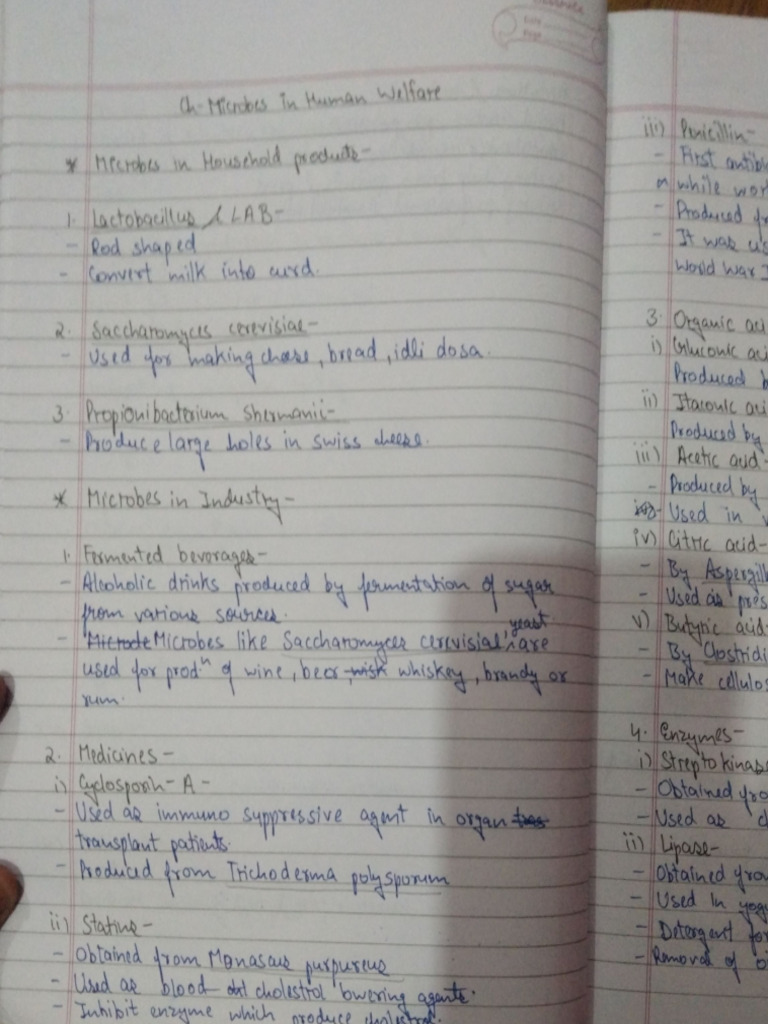 Ch-Microbes in Human Welfare
* Microbes in Household products-
1. Lactobacillus / LAB-
- Rod shaped
- Convert milk into curd.
2. Saccharomyces cerevisiae-
- Used for making cheese, bread, idli dosa.
3. Propionibacterium Shermanii-
- Produce large holes in swiss cheese.
* Microbes in Industry-
1. Fermented beverages-
- Alcoholic drinks produced by fermentation of sugar
from various sources.
- Microbes like Saccharomyces cerevisiae, yeast are
used for prodn of wine, beer, whiskey, brandy or
rum.
2. Medicines-
i) Cyclosporin-A-
- Used as immuno suppressive agent in organ
transplant patients.
- Produced from Trichoderma polysporum
ii) Statins-
- Obtained from Monascus purpureus
- Used as blood cholestrol lowering agents.
- Inhibit enzyme which produce cholestrol.
iii) Penicillin-
- First antib
while wor
- Produced fr
- It was us
World War I
3. Organic aci
i) Gluconic aci
Produced b
ii) Itaconic aci
Produced by
iii) Acetic acid-
- Produced by
- Used in v
iv) Citric acid-
- By Aspergill
- Used as pres
v) Butyric acid-
- By Clostridi
- Make cellulos
4. Enzymes-
i) Streptokinase
- Obtained fro
- Used as c
ii) Lipase-
- Obtained from
- Used in yog
- Detergent for
- Removal of o